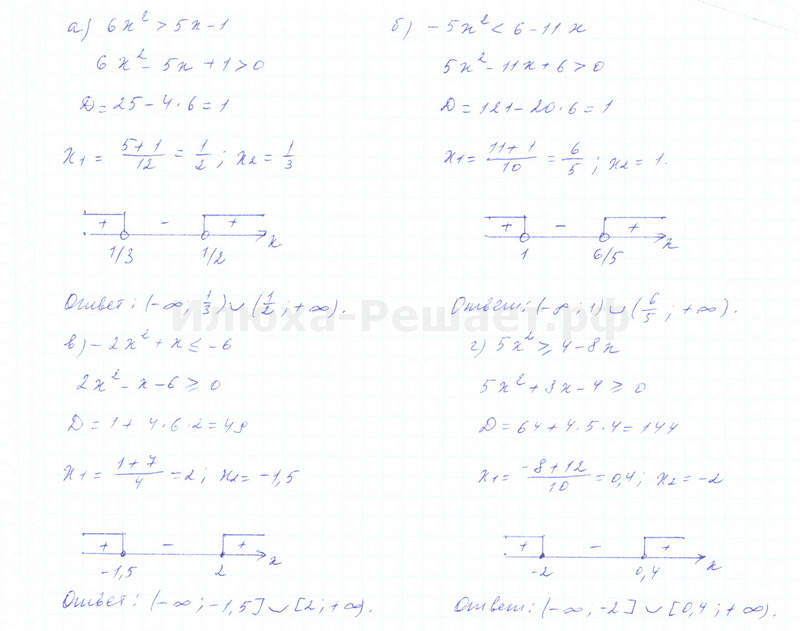 а) 6x² > 5x - 1
6x² - 5x + 1 > 0
D = 25 - 4·6 = 1
x₁ = (5+1)/12 = 1/2; x₂ = 1/3
+ - +
1/3 1/2 x
Ответ: (-∞, 1/3) ∪ (1/2; +∞).
б) -5x² < 6 - 11x
5x² - 11x + 6 > 0
D = 121 - 20·6 = 1
x₁ = (11+1)/10 = 6/5; x₂ = 1.
+ - +
1 6/5 x
Ответ: (-∞; 1) ∪ (6/5; +∞).
Илюха-Решает.рф
в) -2x² + x ≤ -6
2x² - x - 6 ≥ 0
D = 1 + 4·6·2 = 49
x₁ = (1+7)/4 = 2; x₂ = -1,5
+ - +
-1,5 2 x
Ответ: (-∞; -1,5] ∪ [2; +∞).
г) 5x² ≥ 4 - 8x
5x² + 8x - 4 ≥ 0
D = 64 + 4·5·4 = 144
x₁ = (-8+12)/10 = 0,4; x₂ = -2
+ - +
-2 0,4 x
Ответ: (-∞, -2] ∪ [0,4; +∞).